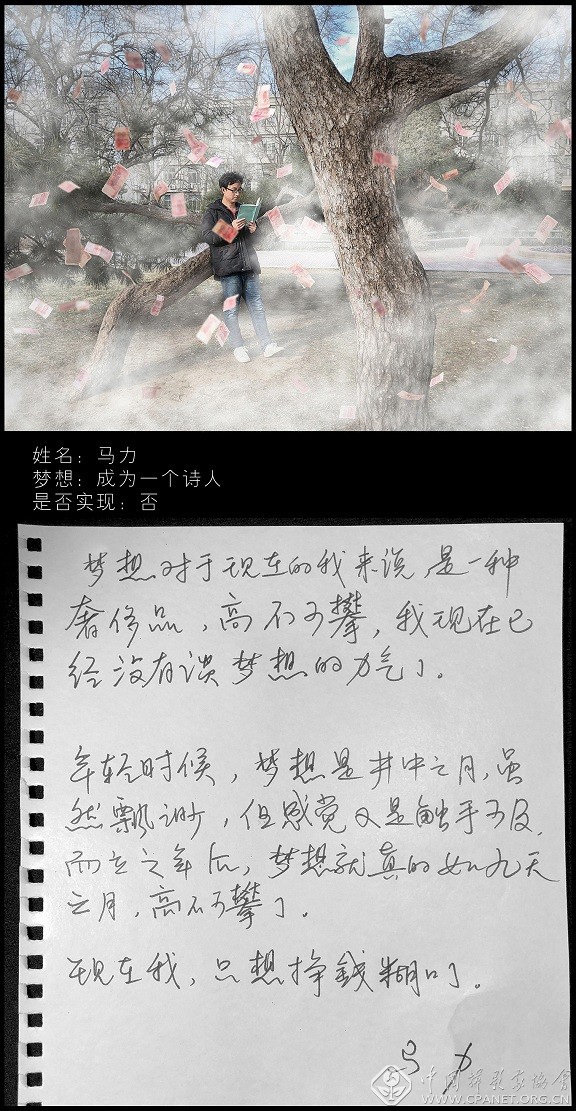 姓名：马力
梦想：成为一个诗人
是否实现：否
梦想对于现在的我来说，是一种
奢侈品，高不可攀，我现在已
经没有谈梦想的力气了。
年轻时候，梦想是井中之月，虽
然飘渺，但感觉又是触手可及，
而立之年后，梦想就真的如九天
之月，高不可攀了。
现在我，只想挣钱糊口了。
马力
中国摄影家协会
WWW.CPANET.ORG.CN